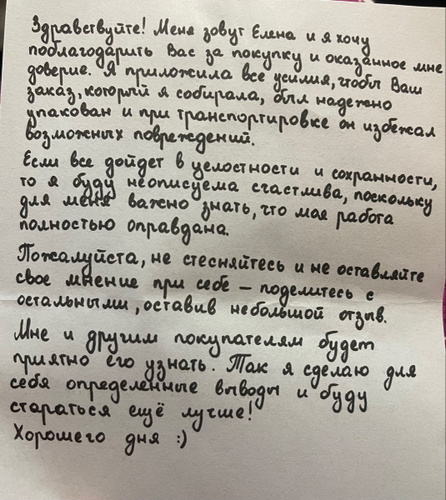 Здравствуйте! Меня зовут Елена и я хочу
поблагодарить Вас за покупку и оказанное мне
доверие. Я приложила все усилия, чтобы Ваш
заказ, который я собирала, был надежно
упакован и при транспортировке он избежал
возможных повреждений.
Если все дойдет в целостности и сохранности,
то я буду неописуема счастлива, поскольку
для меня важно знать, что моя работа
полностью оправдана.
Пожалуйста, не стесняйтесь и не оставляйте
свое мнение при себе – поделитесь с
остальными, оставив небольшой отзыв.
Мне и другим покупателям будет
приятно его узнать. Так я сделаю для
себя определенные выводы и буду
стараться ещё лучше!
Хорошего дня :)